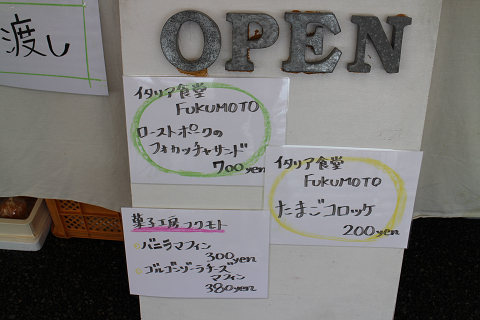 渡し
OPEN
イタリア食堂
FUKUMOTO
ローストポークの
フォカッチャサンド
700yen
イタリア食堂
FUKUMOTO
たまごコロッケ
200yen
菓子工房フクモト
バニラマフィン
300yen
ゴルゴンゾーラチーズ
マフィン
380yen